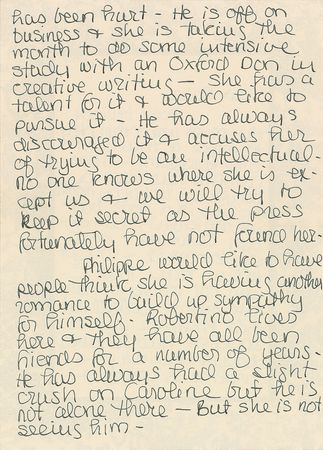 has been hurt - He is off on
business & she is taking the
month to do some intensive
study with an Oxford Don in
creative writing - She has a
talent for it & would like to
pursue it - He has always
discouraged it & accuses her
of trying to be an intellectual -
no one knows where she is ex-
cept us & we will try to
keep it secret as the press
fortunately have not found her -
Philippe would like to have
people think she is having another
romance to build up sympathy
for himself - Robertino lives
here & they have all been
friends for a number of years -
He has always had a slight
crush on Caroline but he is
not alone there - But she is not
seeing him -